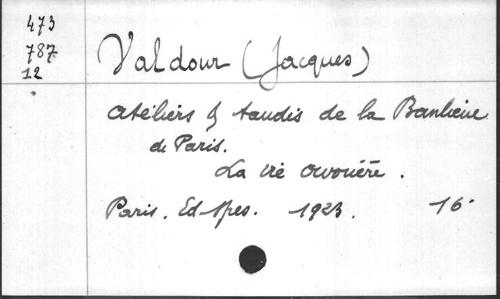 473
787
12
Valdour (Jacques)
Ateliers & taudis de la Banlieue
de Paris.
La vie ouvrière.
Paris. Ed. Spes. 1923. 16°